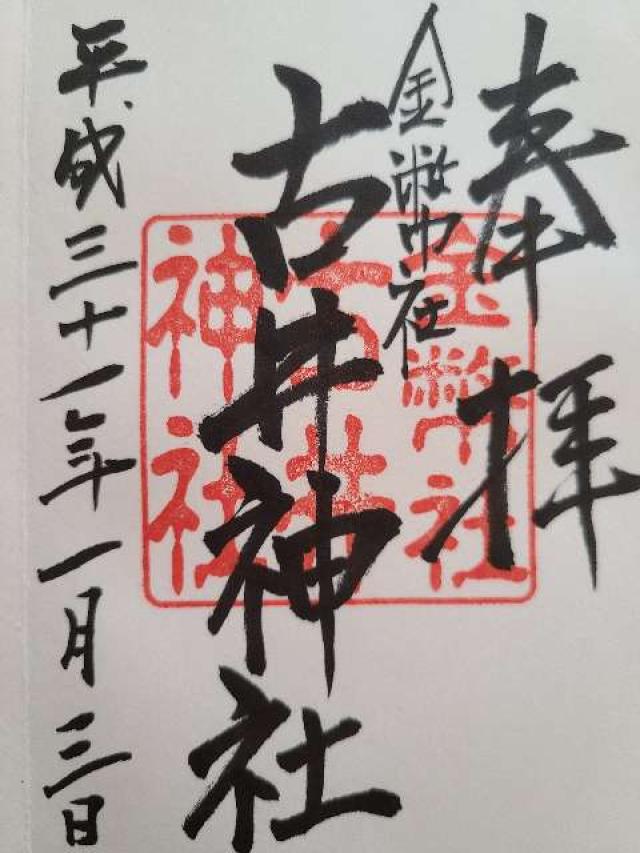 奉拝
金幣社
古井神社
平成三十一年一月三日
金幣社
古井
神社